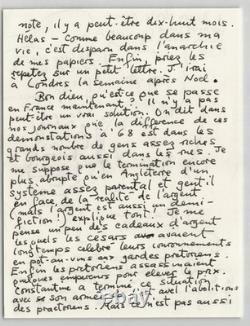 note, il y a peut être dix-huit mois.
Hélas - comme beaucoup dans ma
vie, c'est disparu dans l'anarchie
de mes papiers. Enfin priez les
repetez sur un petit lettre. J'irai
à Londres la semaine après Noël.
Bon dieu qu'est ce que se passe
en France maintenant? Il n'y a pas
peut être un vrai solution. On dit dans
nos journaux que la difference de ces
demonstrations à '68 est dans les
grands nombre de gens assez riches
et bourgeois aussi dans les rues. Je
me suppose que le termination encore
plus abrupte qu'en Angleterre d'un
système assez parental et gentil
en face de la réalité de l'argent
(mais l'argent est aussi un demi-
fiction) explique tout. Je me
pense un peu des cadeaux d'argent
lesquels les cesars avaient
longtemps celebré leurs couronnements
en pot-au-vins aux gardes pretoriens.
Enfin les pretoriens assassinaient
quelques empereurs pour elever le prix.
Constantine a terminé ce situation
avec son armée, avec l'abolitions
des praetoriens. Mais ce n'est pas aussi